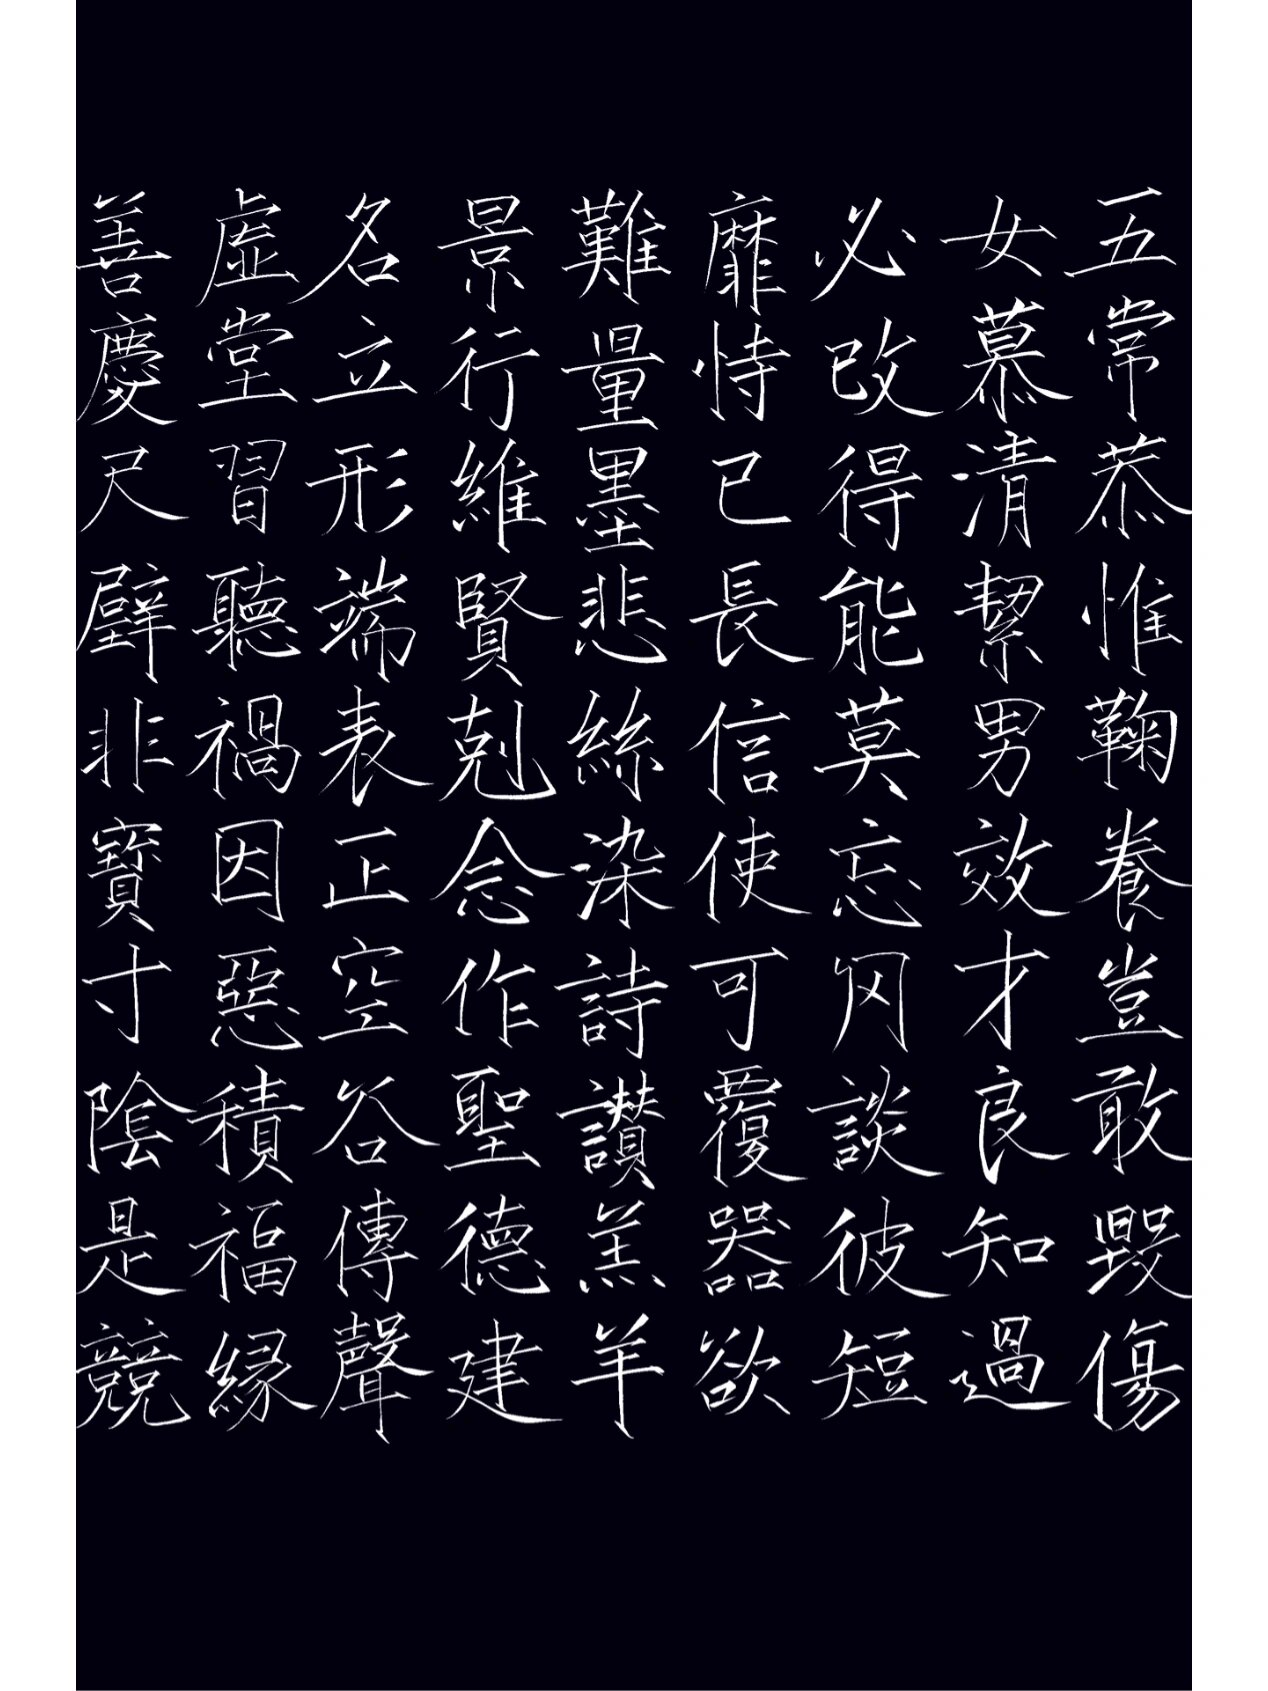 五常恭惟鞠養豈敢毀傷
女慕清絜男效才良知過
必改得能莫忘罔談彼短
靡恃己長信使可覆器欲
難量墨悲絲染詩讚羔羊
景行維賢剋念作聖德建
名立形端表正空谷傳聲
虛堂習聽禍因惡積福緣
善慶尺璧非寶寸陰是競